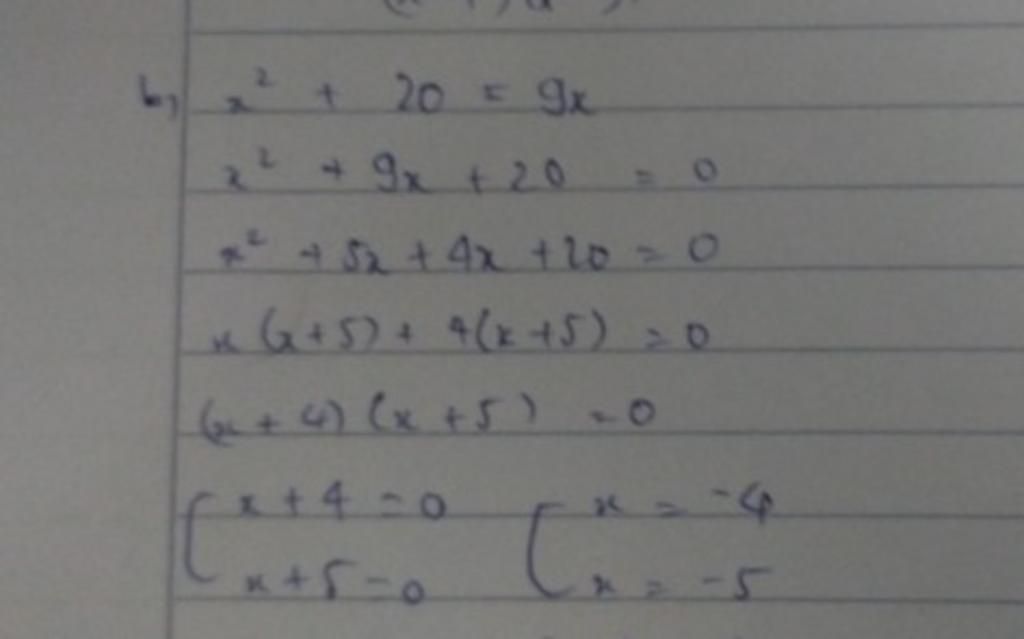 b, x² + 20 = 9x
x² + 9x + 20 = 0
x² + 5x + 4x + 20 = 0
x (x+5) + 4(x+5) = 0
(x + 4) (x + 5) = 0
[ x + 4 = 0 [ x = -4
x + 5 = 0 x = -5